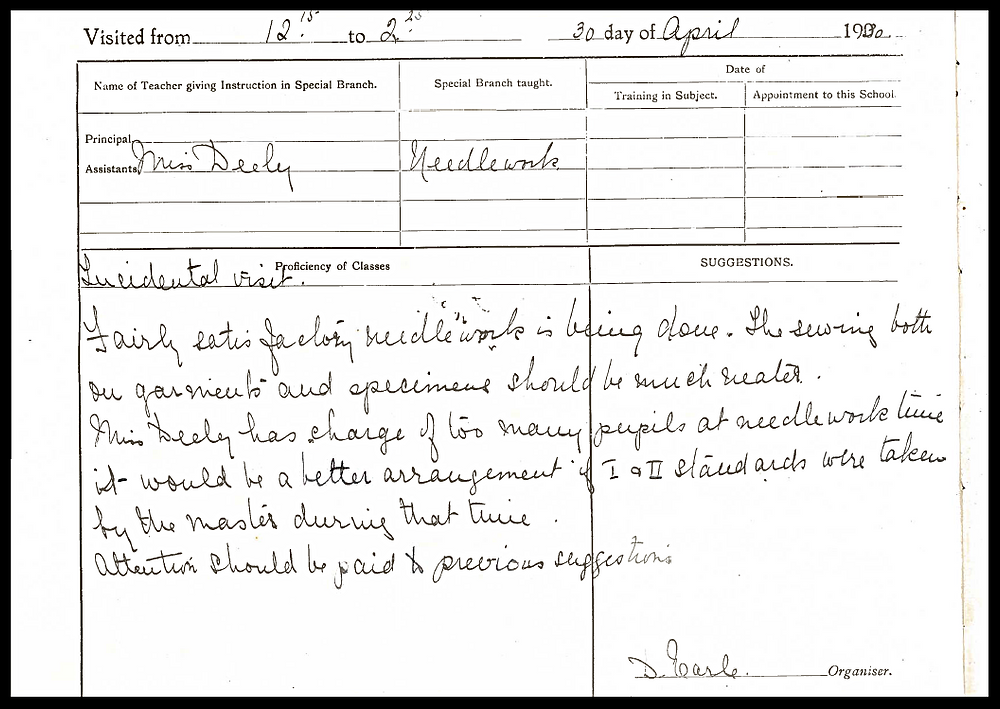 Visited from 12.15 to 2.25 30 day of April 19
Name of Teacher giving Instruction in Special Branch. Special Branch taught. Date of
Training in Subject. Appointment to this School.
Principal
Assistants Miss Deely Needlework
Proficiency of Classes SUGGESTIONS.
Incidental visit.
Fairly satisfactory needlework is being done. The sewing both
on garments and specimens should be much neater.
Miss Deely has charge of too many pupils at needlework time
it would be a better arrangement if I & II standards were taken
by the master during that time.
Attention should be paid to previous suggestions
D. Earle. Organiser.